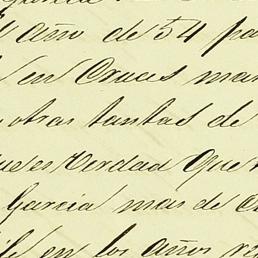 Garcia
Año de 54 pa
en Cruces mas
otras tantas de
es Verdad Que
Garcia mas de C
en los Años